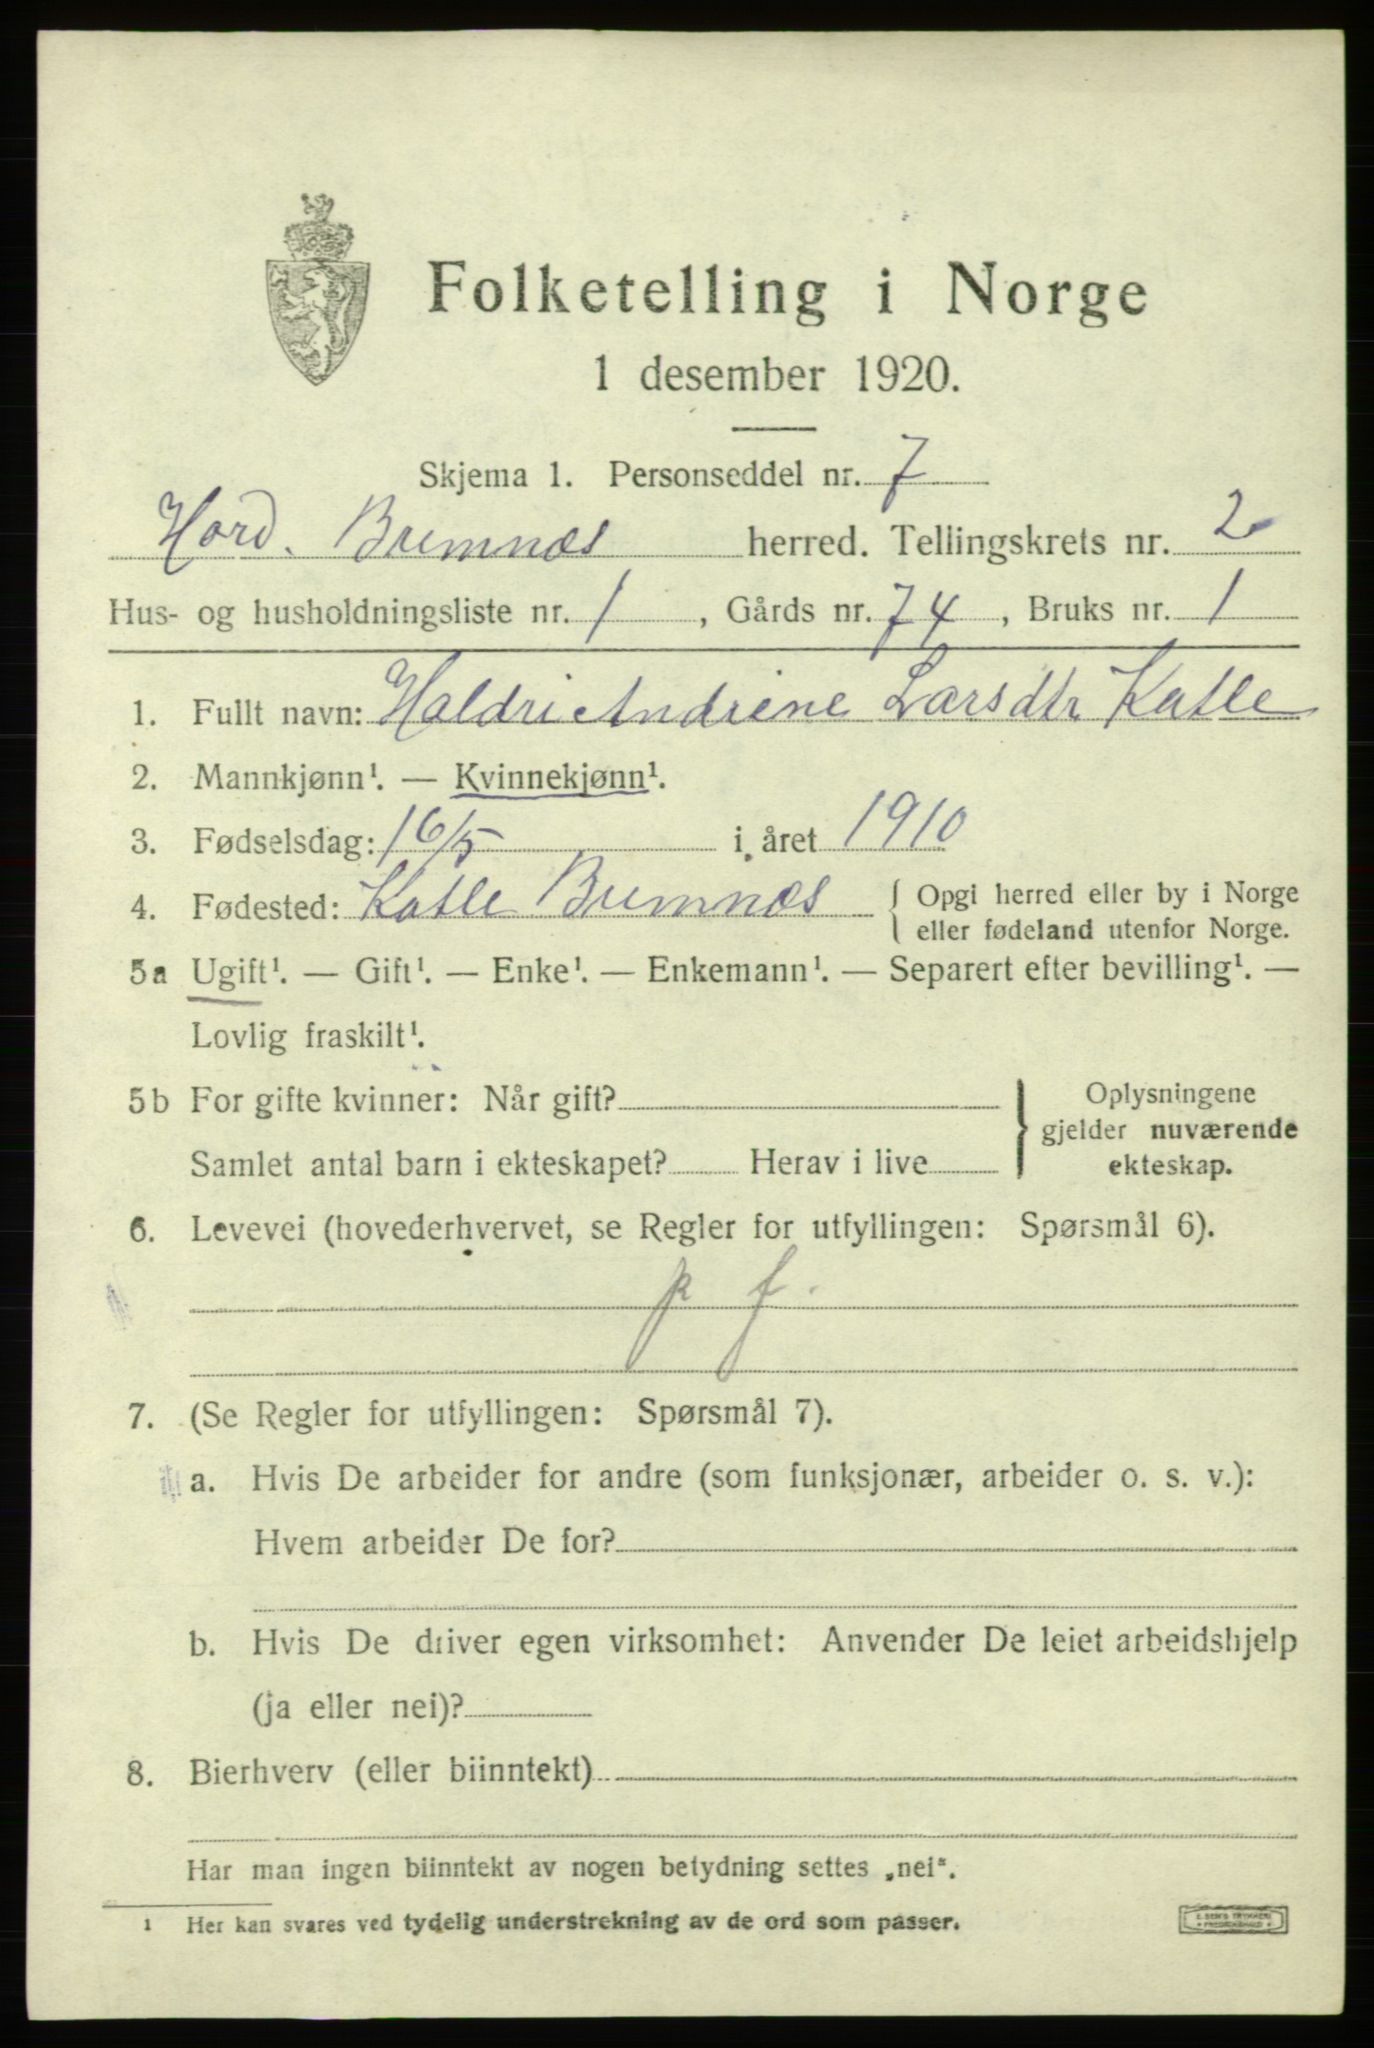 Folketelling i Norge
1 desember 1920.
Skjema 1. Personseddel nr. 7
Hord. Bremnæs herred. Tellingskrets nr. 2
Hus- og husholdningsliste nr. 1, Gårds nr. 74, Bruks nr. 1
1. Fullt navn: Haldri Andrine Larsdtr Katle
2. Mannkjønn¹. — Kvinnekjønn¹.
3. Fødselsdag: 16/5 i året 1910
4. Fødested: Katle Bremnæs { Opgi herred eller by i Norge
eller fødeland utenfor Norge.
5a Ugift¹. — Gift¹. — Enke¹. — Enkemann¹. — Separert efter bevilling¹. —
Lovlig fraskilt¹.
5b For gifte kvinner: Når gift? } Oplysningene
gjelder nuværende
Samlet antal barn i ekteskapet? Herav i live ekteskap.
6. Levevei (hovederhvervet, se Regler for utfyllingen: Spørsmål 6).
p f.
7. (Se Regler for utfyllingen: Spørsmål 7).
a. Hvis De arbeider for andre (som funksjonær, arbeider o. s. v.):
Hvem arbeider De for?
b. Hvis De driver egen virksomhet: Anvender De leiet arbeidshjelp
(ja eller nei)?
8. Bierhverv (eller biinntekt)
Har man ingen biinntekt av nogen betydning settes „nei“.
1 Her kan svares ved tydelig understrekning av de ord som passer.